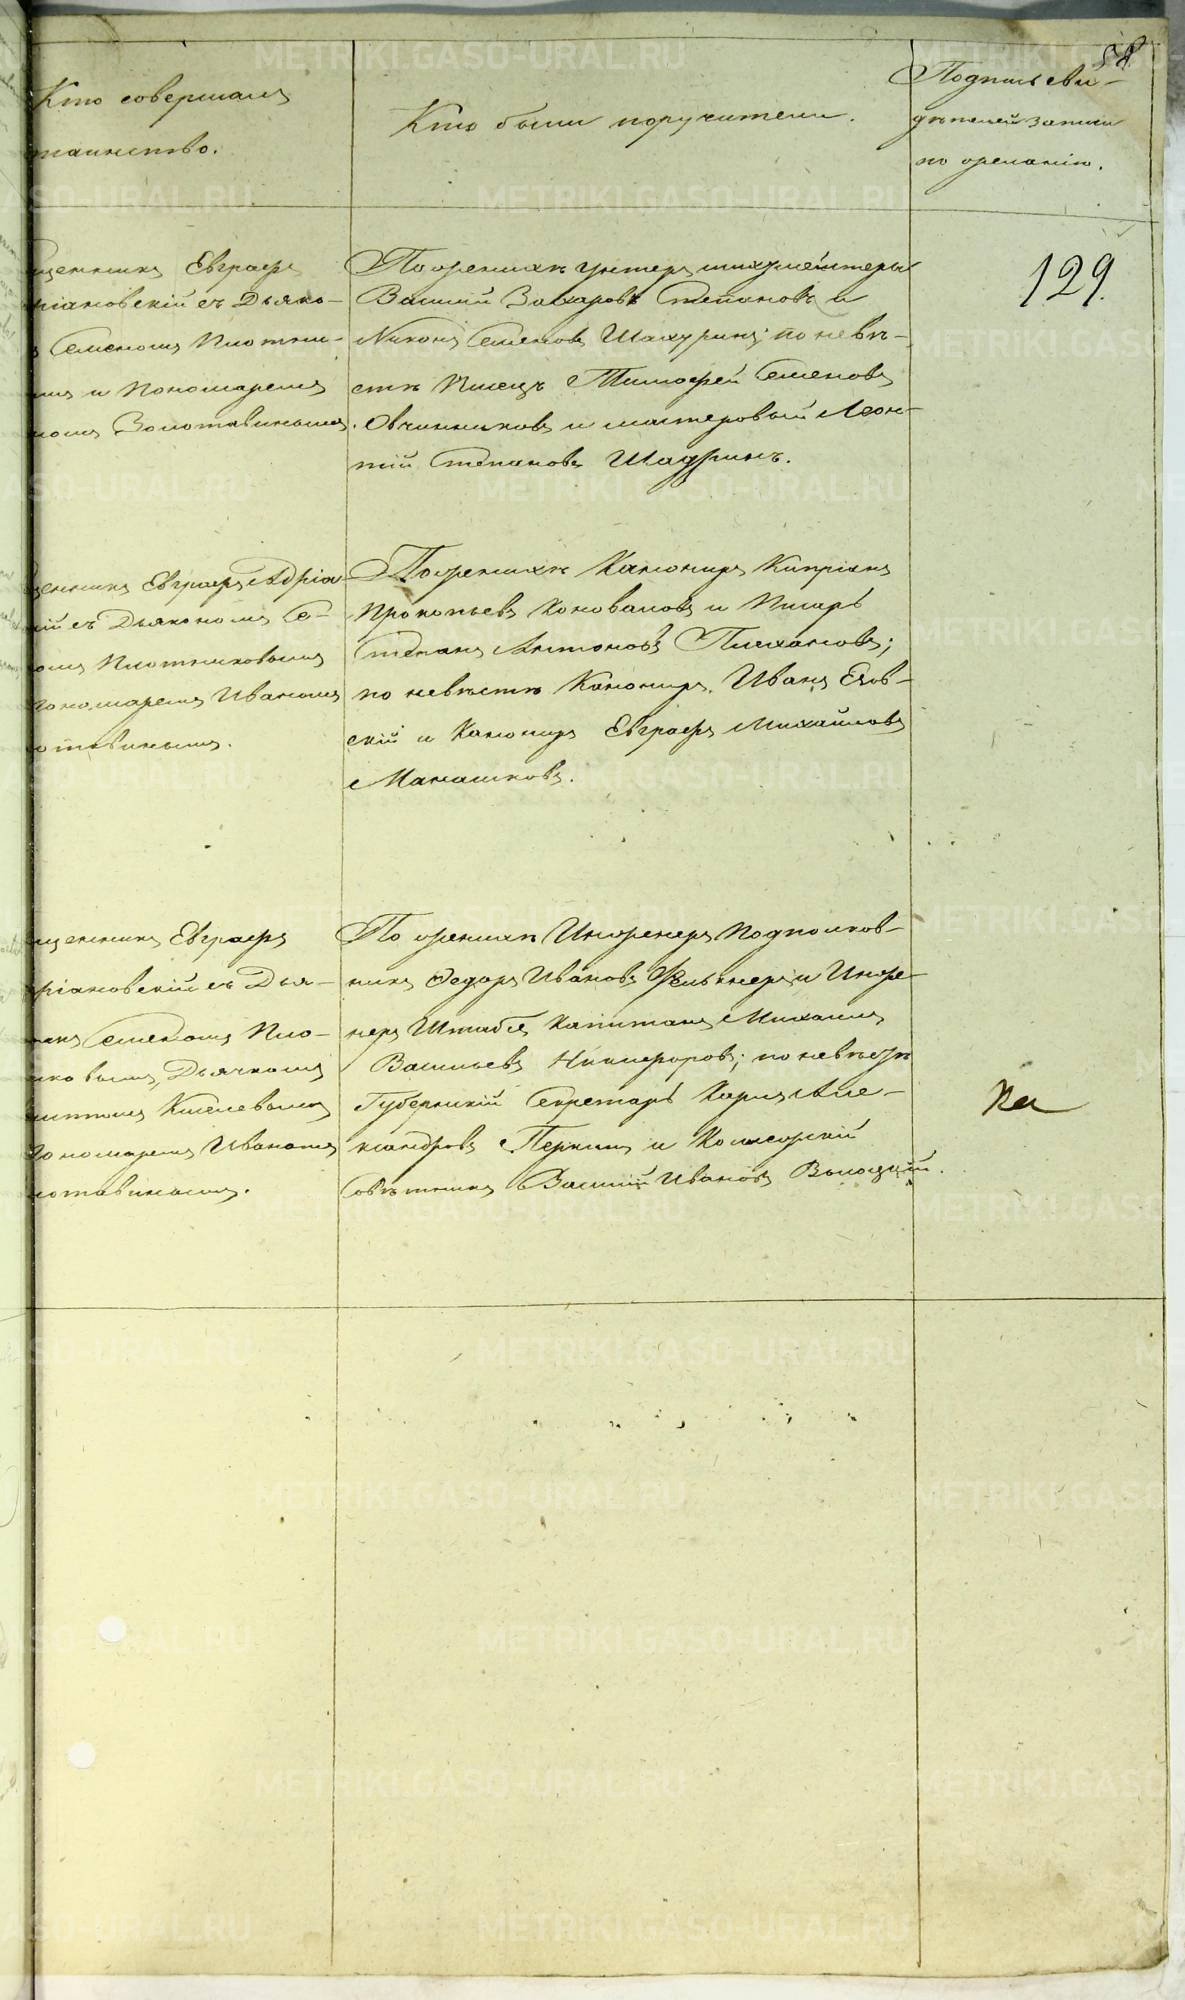 58
Кто совершалъ
таинство.
Кто были поручители.
Подпись сви-
дѣтелей записи
по желанію.
щенникъ Евграфъ
ріановскій съ Дьяко-
Семеномъ Плотни-
и Пономаремъ
Золотавинымъ.
По женихѣ унтеръ шихтмейстеры
Василій Захаровъ Степановъ и
Никонъ Семеновъ Шахуринъ; по невѣ-
стѣ Писецъ Тимофей Семеновъ
Овчинниковъ и мастеровый Леон-
тій Степановъ Шадринъ.
129.
щенникъ Евграфъ Адріа-
кій съ Дьякономъ Се-
Плотниковымъ
Пономаремъ Иваномъ
отавинымъ.
По женихѣ Канониръ Кипріанъ
Прокопьевъ Коноваловъ и Писарь
Степанъ Антоновъ Плехановъ;
по невѣстѣ Канониръ Иванъ
скій и Канониръ Евграфъ Михайловъ
Манашковъ.
щенникъ Евграфъ
ріановскій съ Дья-
Семеномъ Пло-
ковымъ, Дьячкомъ
Киселевымъ
Пономаремъ Иваномъ
лотавинымъ.
По женихѣ Инженеръ Подполков-
никъ Федоръ Ивановъ Фелькнеръ и Инже-
неръ Штабсъ Капитанъ Михаилъ
Васильевъ Никифоровъ; по невѣстѣ
Губернскій Секретарь Карлъ Але-
ксандровъ и Коллежскій
Совѣтникъ Василій Ивановъ
METRIKI.GASO-URAL.RU